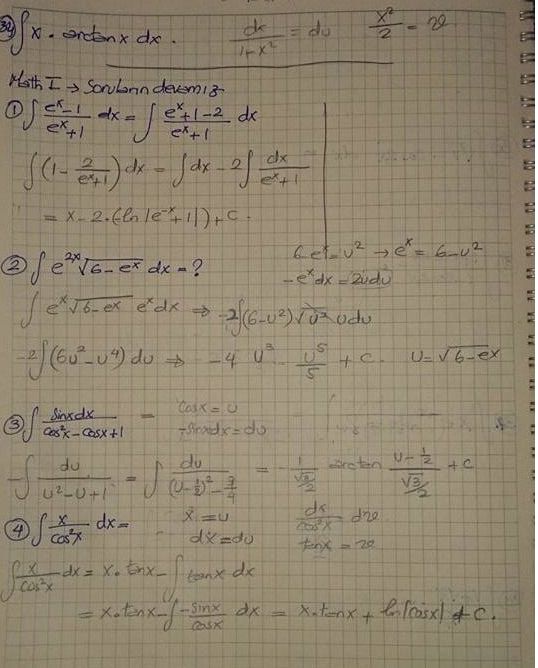 ∫ x · arctanx dx.   dx/(1+x²) = du   x²/2 = v
Math I → Soruların devamı:
① ∫ (eˣ-1)/(eˣ+1) dx = ∫ (eˣ+1-2)/(eˣ+1) dx
∫ (1 - 2/(eˣ+1)) dx = ∫ dx - 2 ∫ dx/(eˣ+1)
= x - 2·(-ln|e⁻ˣ+1|) + c.
② ∫ e²ˣ √(6-eˣ) dx = ?   6-eˣ = u² → eˣ = 6-u²
-eˣdx = 2udu
∫ eˣ √(6-eˣ) eˣdx ⇒ -2∫ (6-u²) √u² u du
-2∫ (6u²-u⁴) du ⇒ -4 u³ u⁵/5 + c.   u = √(6-eˣ)
③ ∫ sinxdx/(cos²x-cosx+1) =   cosx = u
-sinxdx = du
-∫ du/(u²-u+1) = ∫ du/((u-½)²-¾) = -1/(√3/2) arctan (u-½)/(√3/2) + c
④ ∫ x/cos²x dx =   x = u   dx/cos²x dv
dx = du   tanx = v
∫ x/cos²x dx = x·tanx - ∫ tanx dx
= x·tanx - ∫ -sinx/cosx dx = x·tanx + ln|cosx| + c.